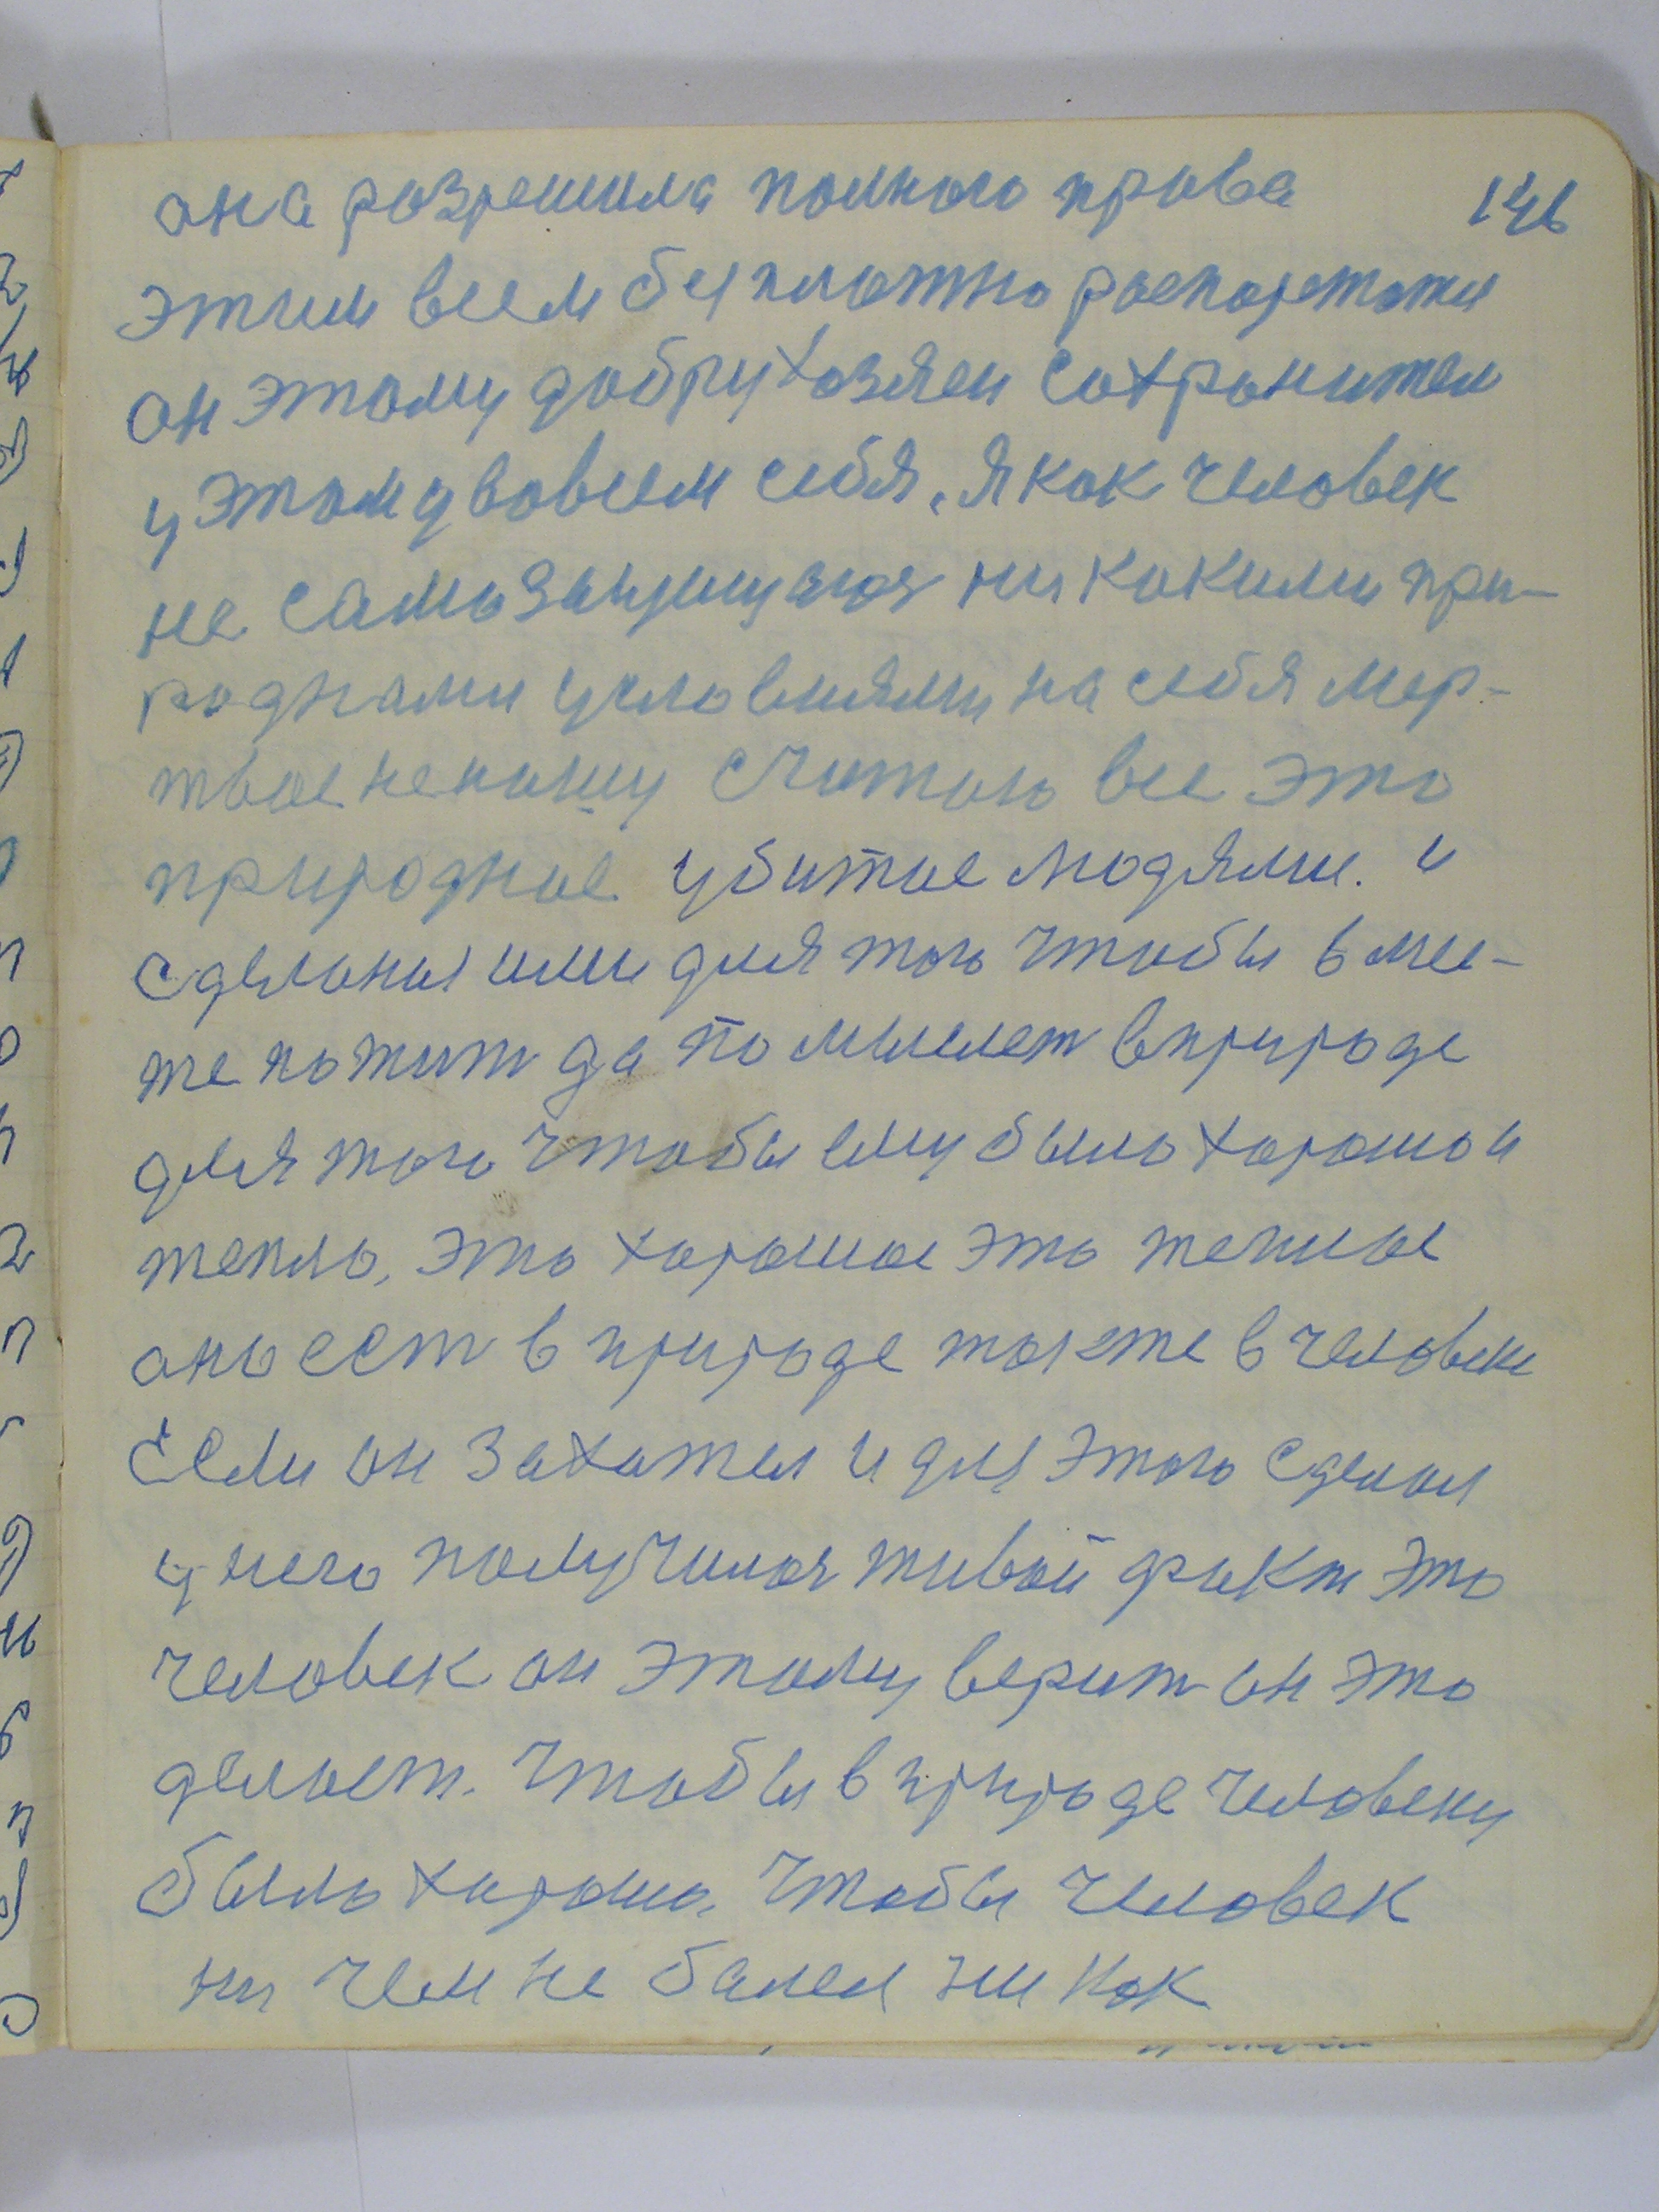 она разрешила полного права
146
этим всем бесплатно
он этому добру хозяен сохранител
у этому вовсем себя, я как человек
не самозащищаюя ни какими при-
роднами условиями на себя мер-
твое не ношу считаю все это
природное убитое людями. и
сделоные ими для того чтобы в ме-
же да в природе
для того чтобы ему было хорошо и
тепло, это хорошое это теплое
оно ест в природе также в человеке
Если он захотел и для этого сделал
у него получился живой факт это
человек он этому верит он это
делает. Чтобы в природе человеку
было хорошо, чтобы человек
ни чем не балел ни как